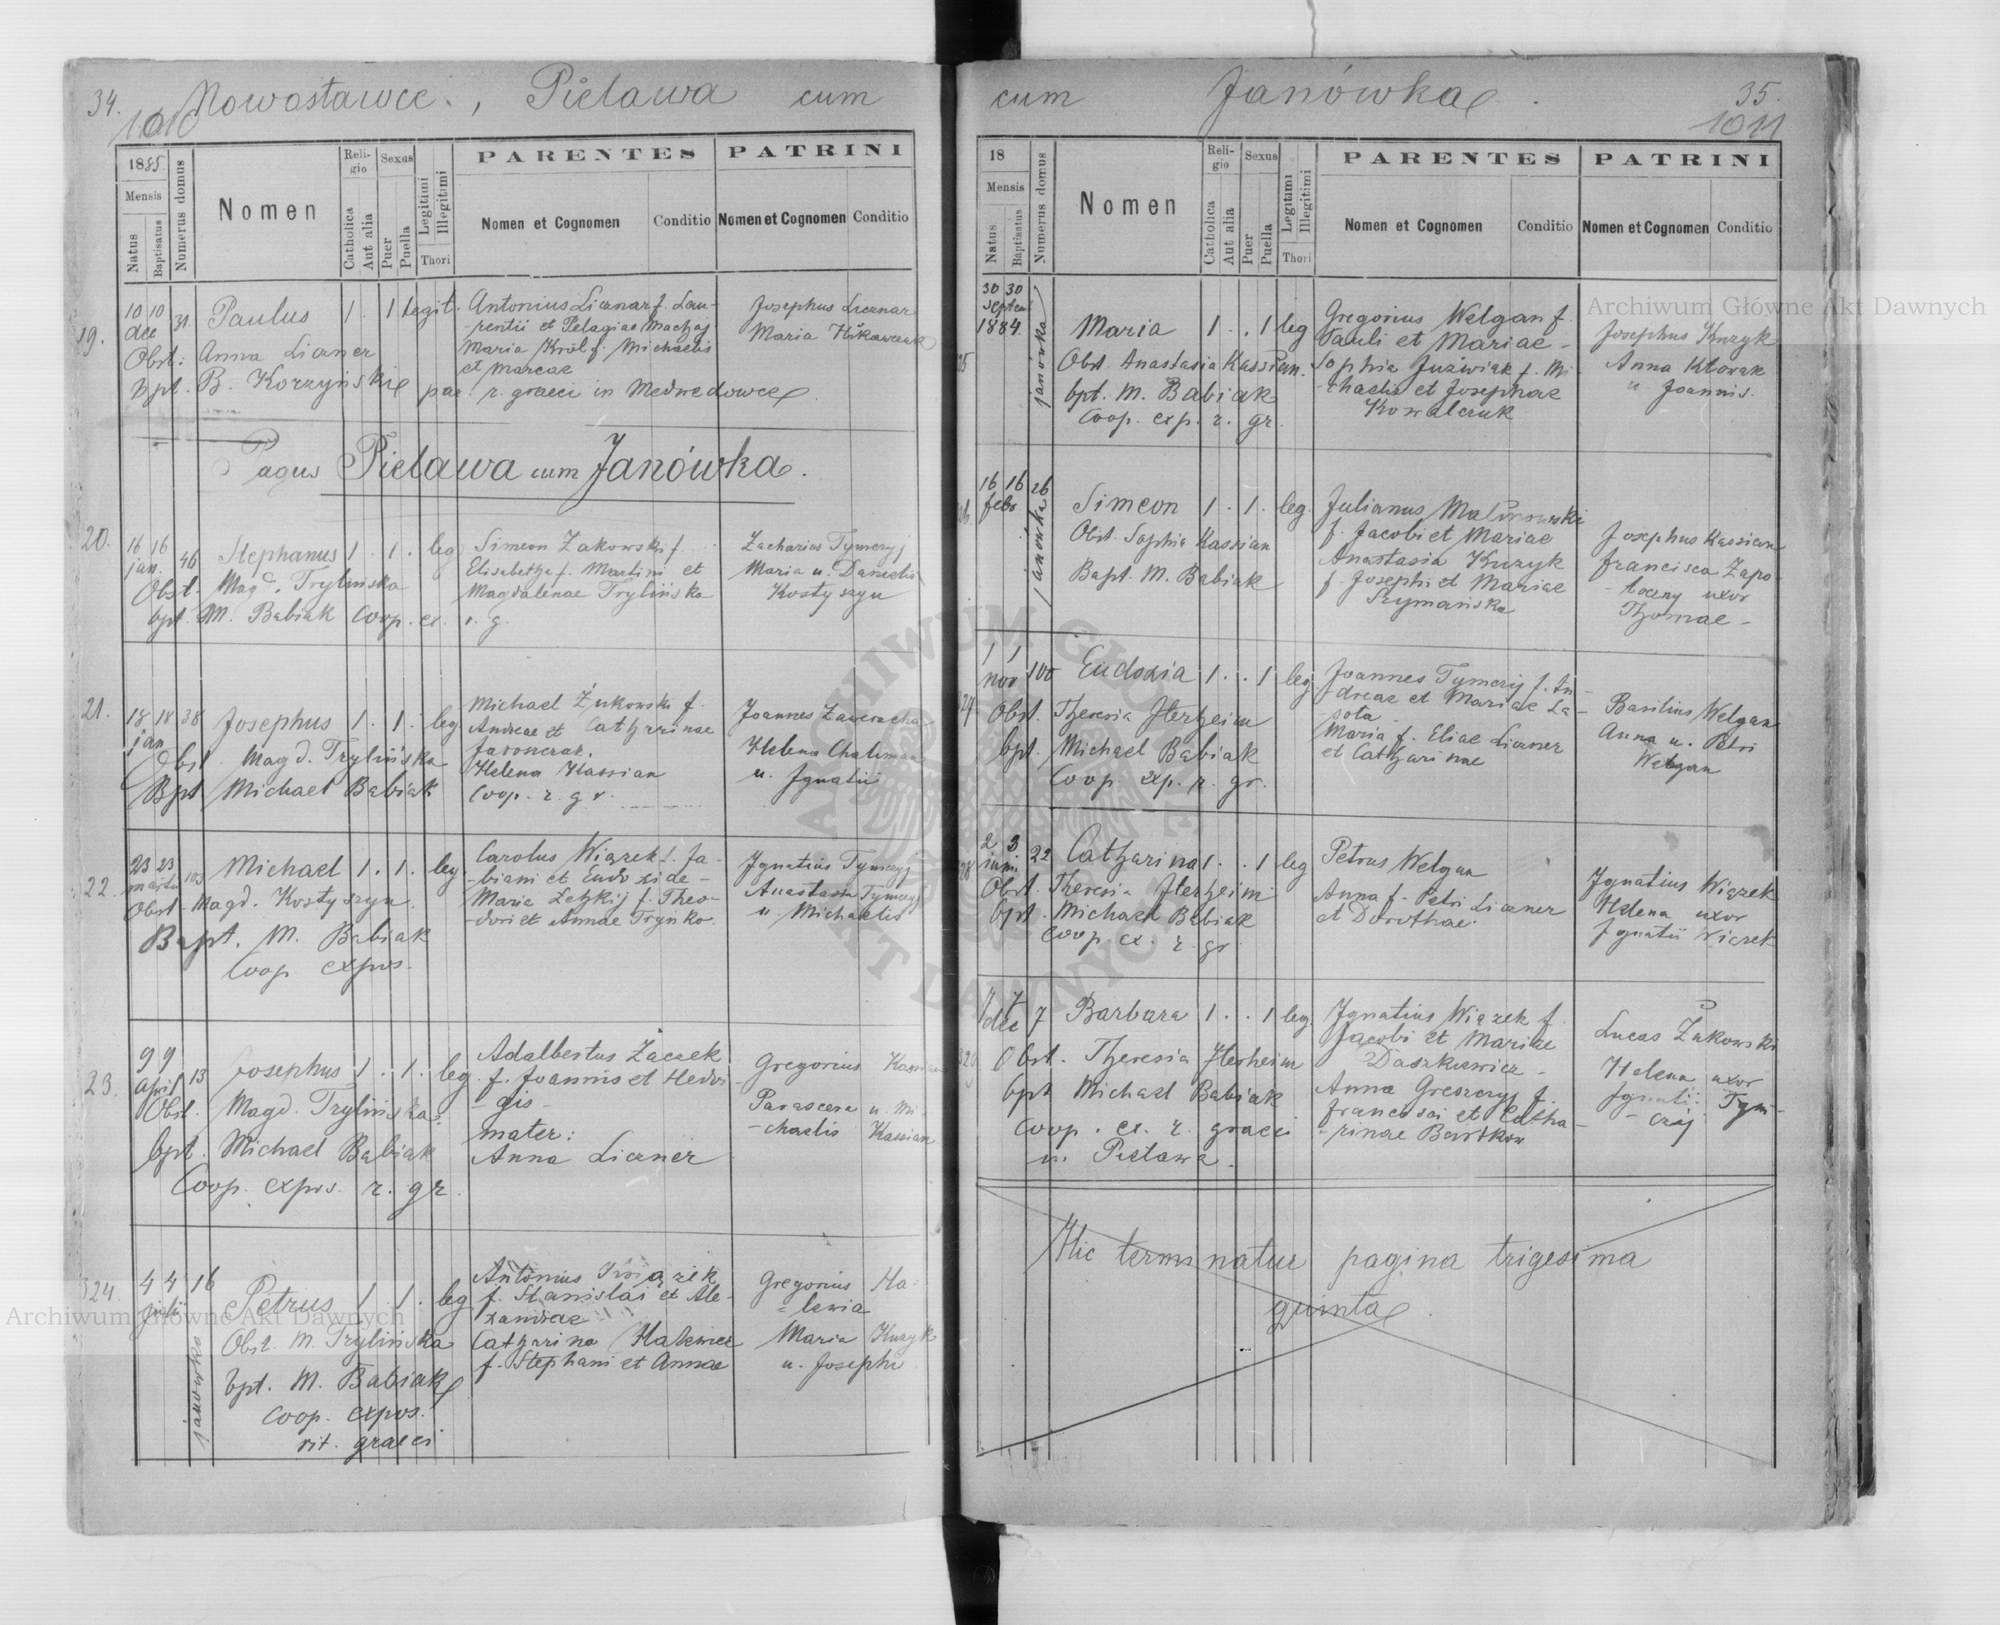 34.
1010
Nowostawce., Pielawa cum
1885.
Mensis
Natus
Baptisatus
Numerus domus
Nomen
Religio
Catholica
Aut alia
Sexus
Puer
Puella
Legitimi
Illegitimi
Thori
PARENTES
Nomen et Cognomen
Conditio
PATRINI
Nomen et Cognomen
Conditio
19.
10 10
dec
31
Paulus 1 . 1 legit.
Obst: Anna Liczner
Bpt. B. Korzyński par. r. graeci in Medwedowce
Antonius Licznar f. Lau-
-rentii et Pelagiae Machaj
Maria Król f. Michaelis
et Mariae
Josephus Licznar
Maria
Pagus Pielawa cum Janówka.
20.
16 16
jan.
46
Stephanus 1 . 1 . leg
Obst. Magd. Trylińska
bpt. M. Babiak Coop. ex. r. g.
Simeon Żakowski f.
Elisabetha f. Martini et
Magdalenae Trylińska
Zacharias Tymczyj
Maria u. Danielis
Kostyszyn
21.
18 18 38
jan
Josephus 1 . 1 . leg
Obst. Magd. Trylińska
Bpt Michael Babiak
Michael Żukowski f.
Andreae et Catharinae
Helena Kassian
Coop. r. gr.
Joannes Zawerucha
Helena
u. Ignatii
22.
23 23
martii
103
Michael 1 . 1 . leg
Obst. Magd. Kostyszyn
Bapt. M. Babiak
Coop expos.
Carolus Wiązek f. Fa-
-biani et Eudoxide-
Maria f. Theo-
-dori et Annae
Ignatius Tymczyj
Anastasia Tymczyj
u. Michaelis
23.
9 9
april
13
Josephus 1 . 1 . leg
Obst. Magd. Trylińska
bpt. Michael Babiak
Coop. expos. r. gr.
Adalbertus Zaczek
f. Joannis et Hedvi-
-gis-
mater:
Anna Licznér
Gregorius Kassian
Parascena u. Mi-
-chaelis Kassian
324.
4 4 16
julii
janówka
Petrus 1 1 . leg
Obst. M. Trylińska
bpt. M. Babiak
Coop. expos.
rit. graeci
Antonius Wiązek
f. Stanislai et Ale-
xandrae
Catharina
f. Stephani et Annae
Gregorius Ha-
=lewia
Maria Kuzyk
u. Josephi
cum Janówka.
35.
1011
18
Mensis
Natus
Baptisatus
Numerus domus
Nomen
Religio
Catholica
Aut alia
Sexus
Puer
Puella
Legitimi
Illegitimi
Thori
PARENTES
Nomen et Cognomen
Conditio
PATRINI
Nomen et Cognomen
Conditio
30 30
Septem
1884
janówka
Maria 1 . . 1 leg
Obst. Anastasia Kassian.
bpt. M. Babiak
Coop. exp. r. gr.
Gregorius Welgan f.
Pauli et Mariae-
Sophia Juźwiak f. Mi
-chaelis et Josephae
Kowalczuk
Josephus Kuzyk
Anna Klowak
u. Joannis.
16 16 26
febr
janówka
Simeon 1 . 1 . leg.
Obst. Sophia Kassian
Bapt. M. Babiak
Julianus Malinowski
f. Jacobi et Mariae
Anastasia Kuzyk
f. Josephi et Mariae
Szymańska
Josephus Kassian
francisca Zapo-
-toczny uxor
Thomae-
327
1 1
nov
100
Eudoxia 1 . . 1 leg
Obst. Theresia Sterheim
bpt. Michael Babiak
Coop exp. r. gr.
Joannes Tymczij f. An-
dreae et Mariae La-
sota
Maria f. Eliae Licznér
et Catharinae
Basilius Welgan
Anna u. Petri
Welgan
2 3 22
junii
Catharina 1 . . 1 leg
Obst. Theresia Sterheim
bpt. Michael Babiak
Coop. ex. r. gr
Petrus Welgan
Anna f. Petri Licznér
et Dorothae.
Ignatius Wiązek
Helena uxor
Ignatii Wiązek
7 7
dec
7
Barbara 1 . . 1 leg.
Obst. Theresia Sterheim
bpt Michael Babiak
Coop. ex. r. graeci
in Pielawa.
Ignatius Wiązek f.
Jacobi et Mariae
Daszkiewicz-
Anna Greszczyj f.
francisci et Catha-
-rinae Bartkow
Lucas Żakowski
Helena uxor
Ignatii Tym-
-czij
Hic terminatur pagina trigesima
quinta.
Archiwum Główne Akt Dawnych
Archiwum Główne Akt Dawnych
ARCHIWUM GŁÓWNE AKT DAWNYCH